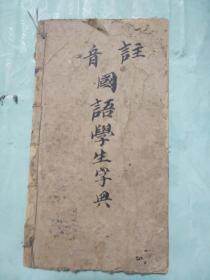 註音
國語學生字典